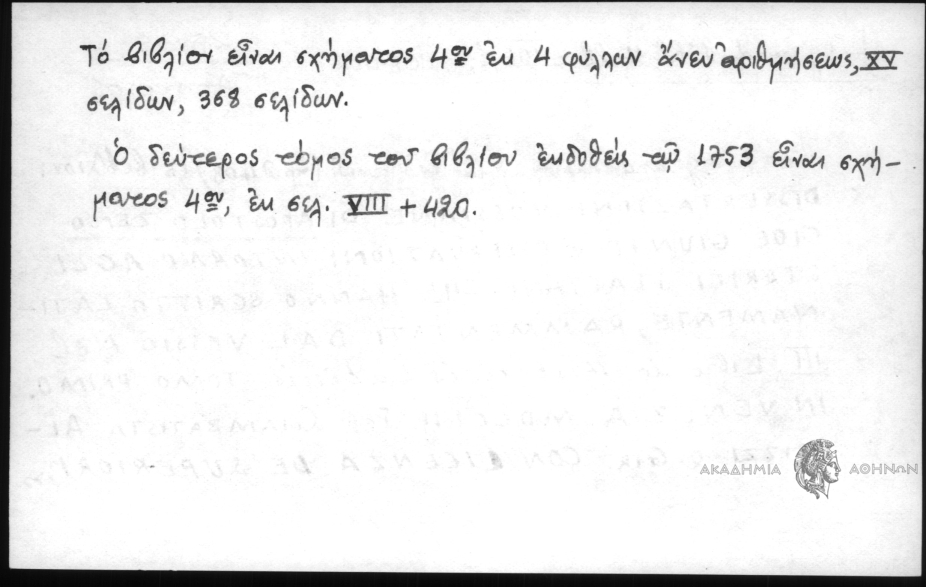 Τό βιβλίον εἶναι σχήματος 4ον ἐκ 4 φύλλων ἄνευ ἀριθμήσεως, XV
σελίδων, 368 σελίδων.
Ὁ δεύτερος τόμος τοῦ βιβλίου ἐκδοθείς τῷ 1753 εἶναι σχή-
ματος 4ον, ἐκ σελ. VIII + 420.
ΑΚΑΔΗΜΙΑ ΑΘΗΝΩΝ